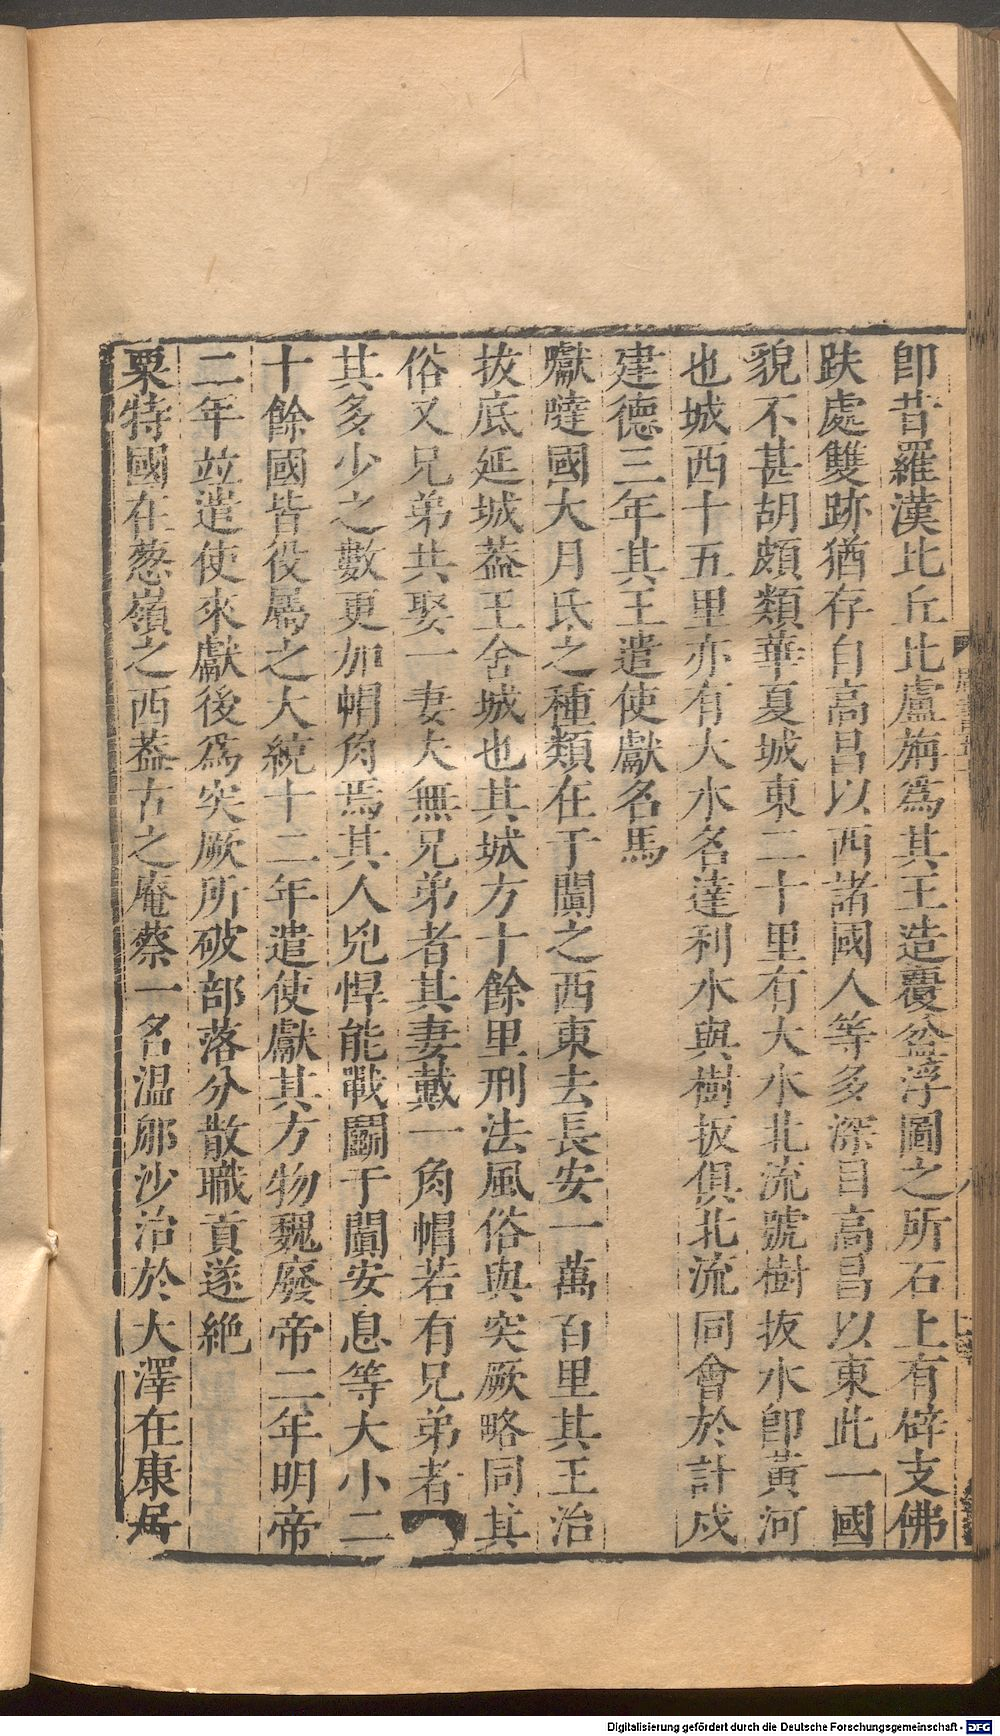 卽昔羅漢比丘比盧旃爲其王造覆盆浮圖之所石上有辟支佛
趺處雙跡猶存自高昌以西諸國人等多深目高昌以東此一國
貌不甚胡頗類華夏城東二十里有大水北流號樹拔水卽黃河
也城西十五里亦有大水名達利水與樹拔俱北流同會於計戍
建德三年其王遣使獻名馬
囐噠國大月氏之種類在于闐之西東去長安一萬百里其王治
拔底延城蓋王舍城也其城方十餘里刑法風俗與突厥略同其
俗又兄弟共娶一妻夫無兄弟者其妻戴一角帽若有兄弟者
其多少之數更加帽角焉其人兇悍能戰鬬于闐安息等大小二
十餘國皆役屬之大統十二年遣使獻其方物魏廢帝二年明帝
二年竝遣使來獻後爲突厥所破部落分散職貢遂絶
粟特國在葱嶺之西葢古之庵蔡一名溫那沙治於大澤在康居
Digitalisierung gefördert durch die Deutsche Forschungsgemeinschaft - DFG